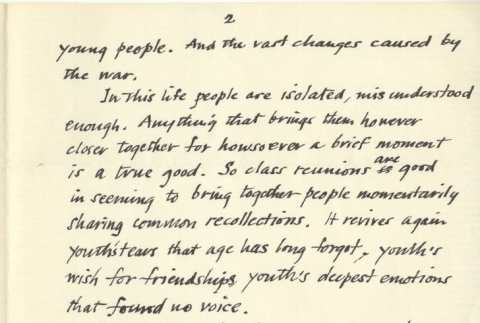 2
young people. And the vast changes caused by
the war.
In this life people are isolated, misunderstood
enough. Anything that brings them however
closer together for howsoever a brief moment
is a true good. So class reunions are good
in seeming to bring together people momentarily
sharing common recollections. It revives again
youth's tears that age has long forgot, youth's
wish for friendships youth's deepest emotions
that found no voice.